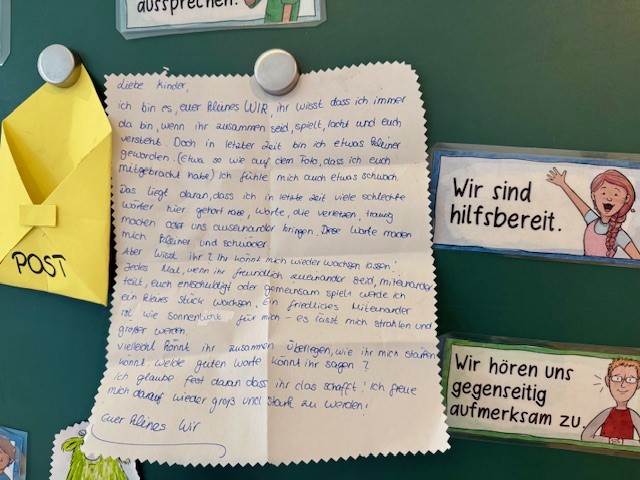 aussprechen.
Liebe Kinder,
ich bin es, euer kleines WIR, ihr wisst dass ich immer
da bin, wenn ihr zusammen seid, spielt, lacht und euch
versteht. Doch in letzter Zeit bin ich etwas kleiner
geworden. (Etwa so wie auf dem Foto, dass ich euch
mitgebracht habe) Ich fühle mich auch etwas schwach.
Das liegt daran, dass ich in letzte Zeit viele schlechte
Wörter hier gehört habe, Worte, die verletzen, traurig
machen oder uns auseinander bringen. Diese Worte machen
mich kleiner und schwächer
Aber wisst ihr? Ihr könnt mich wieder wachsen lassen!
Jedes Mal, wenn ihr freundlich zueinander seid, miteinander
teilt, euch entschuldigt oder gemeinsam spielt werde ich
ein kleines Stück wachsen. Ein friedliches Miteinander
ist wie Sonnenlicht für mich - es lässt mich strahlen und
größer werden.
Vielleicht könnt ihr zusammen überlegen, wie ihr mich stärken
könnt. Welche guten Worte könnt ihr sagen?
Ich glaube fest daran dass ihr das schafft! Ich freue
mich darauf wieder groß und stark zu werden!
Euer kleines Wir
POST
Wir sind
hilfsbereit.
Wir hören uns
gegenseitig
aufmerksam zu.